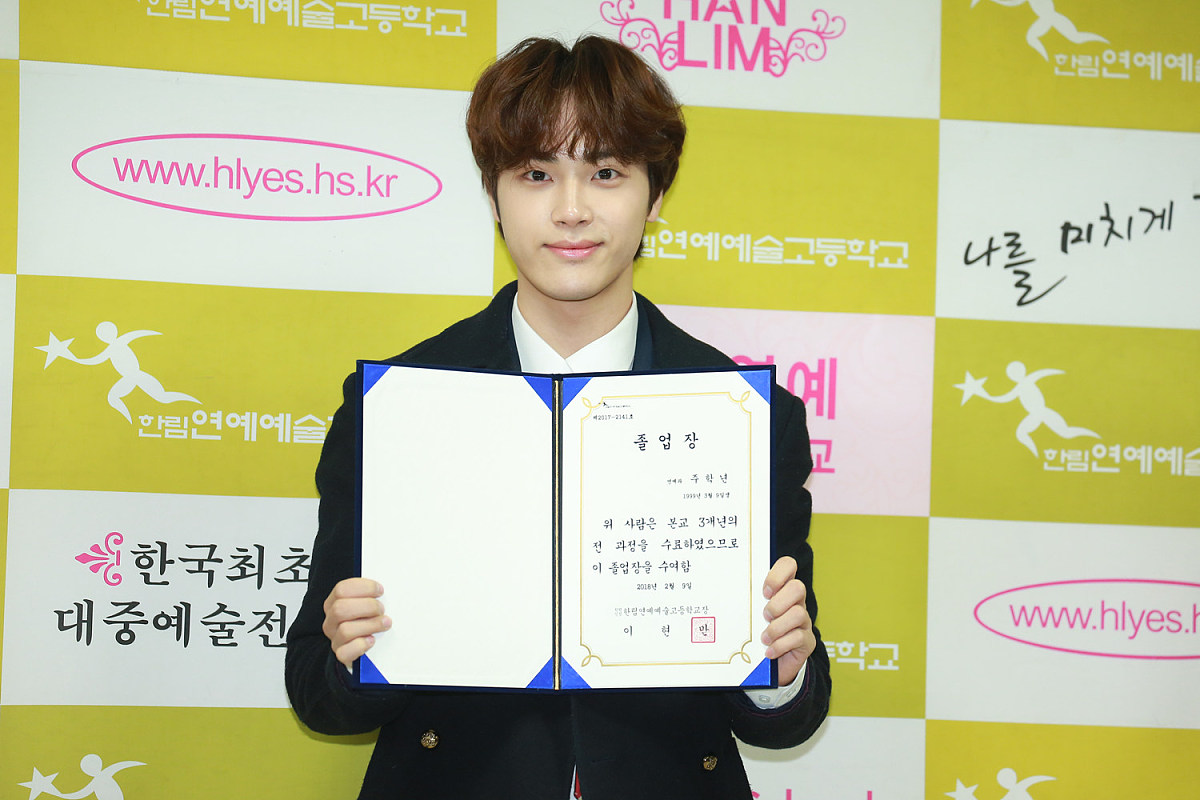 한림연예예술고등학교
HAN
LIM
한림연예예술
www.hlyes.hs.kr
연예예술고등학교
나를 미치게
한림연예예술
한림연예예술
연예
교
한국최초
대중예술전
www.hlyes.h
등학교
제2017-2141호
졸 업 장
연예과 주 학 년
1999년 3월 9일생
위 사람은 본교 3개년의
전 과정을 수료하였으므로
이 졸업장을 수여함
2018년 2월 9일
한림연예예술고등학교장
이 현 만